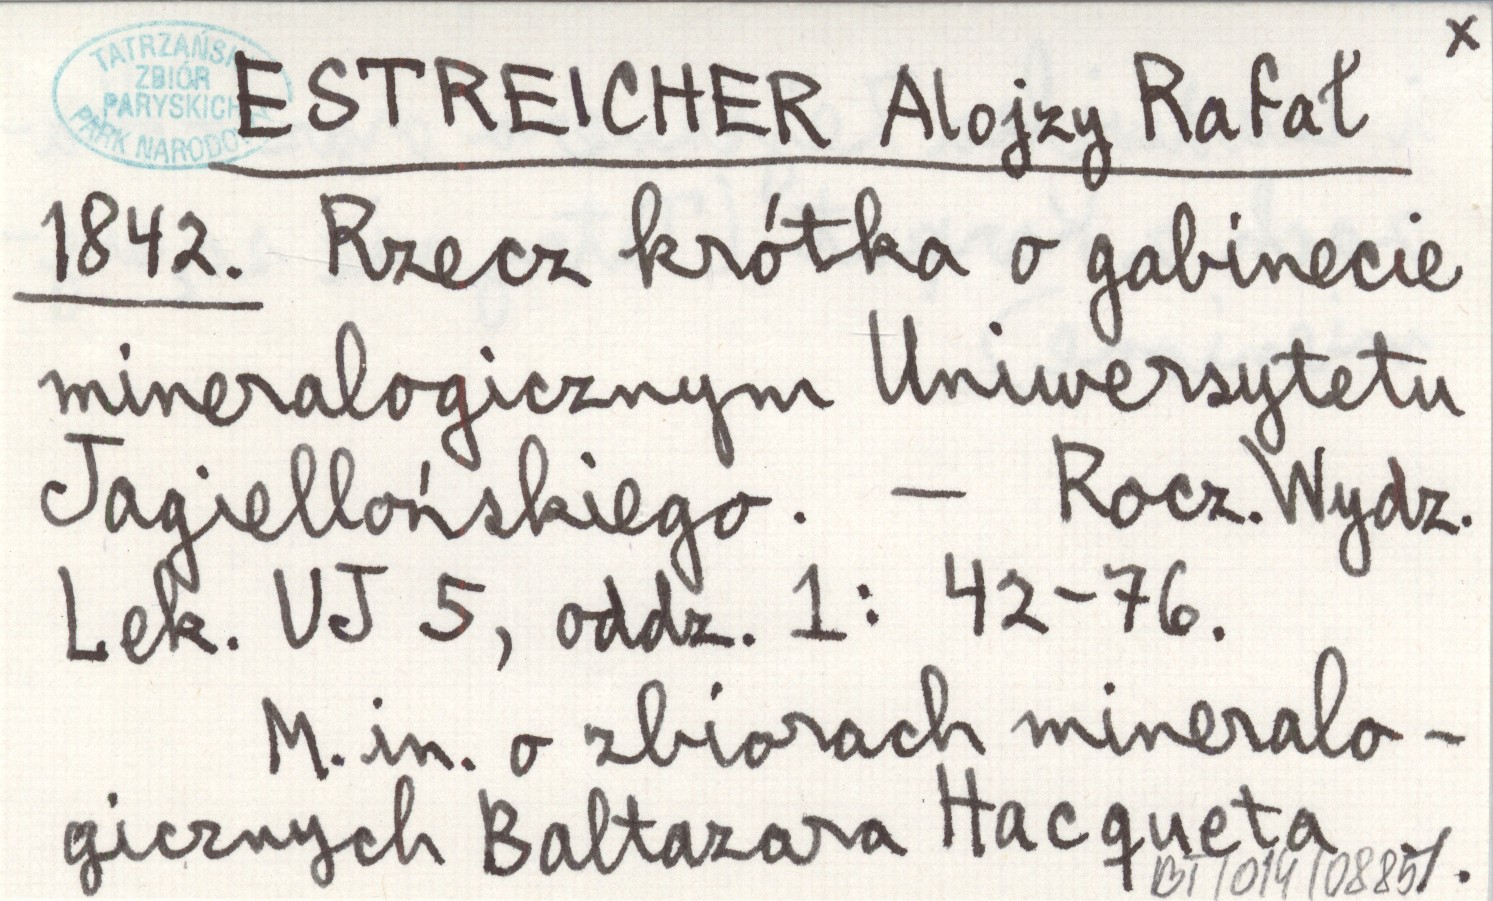 x
TATRZAŃSKI
ZBIÓR
PARYSKICH
PARK NARODOWY
ESTREICHER Alojzy Rafał
1842. Rzecz krótka o gabinecie
mineralogicznym Uniwersytetu
Jagiellońskiego. — Rocz. Wydz.
Lek. UJ 5, oddz. 1: 42-76.
M. in. o zbiorach mineralo-
gicznych Baltazara Hacqueta.
BT/014/08851